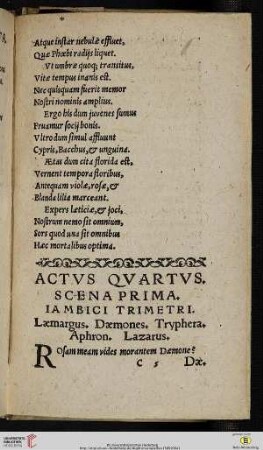 Atque instar nebulæ effluet,
Quæ Phœbi radijs liquet.
Vt umbræ quoq; transitus,
Vitæ tempus inanis est.
Nec quisquam fuerit memor
Nostri nominis amplius.
Ergo his dum juvenes sumus
Fruamur socij bonis.
Vltro dum simul affluunt
Cypris, Bacchus, & unguina.
Ætas dum cita florida est,
Vernent tempora floribus,
Antequam violæ, rosæ, &
Blanda lilia marceant.
Expers læticiæ, & joci,
Nostrum nemo sit omnium,
Sors quod una sit omnibus
Hæc mortalibus optima.
ACTVS QVARTVS.
SCENA PRIMA.
IAMBICI TRIMETRI.
Læmargus. Dæmones. Tryphera.
Aphron. Lazarus.
Rosam meam vides morantem Dæmone?
C 5 Dæ.